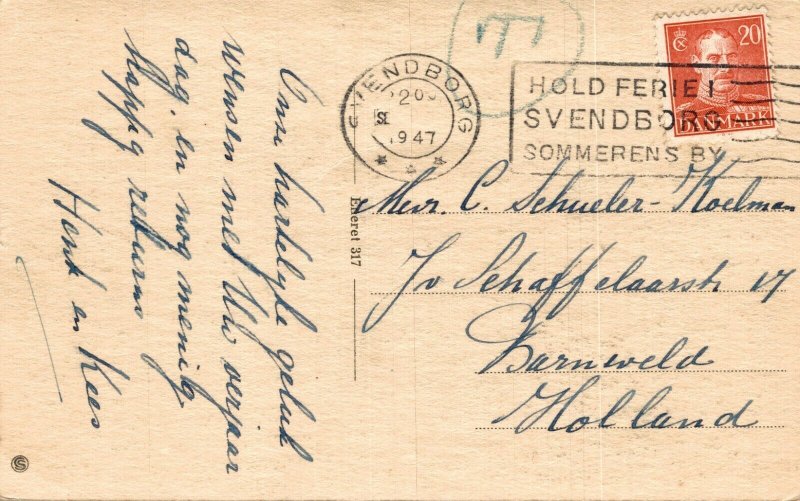 Onse hartelyke geluk
wensen met Uw verjaar
dag. en nog menig
happy returns
Henk en Kees
Eneret 317
SVENDBORG
1947
HOLD FERIE I
SVENDBORG
SOMMERENS BY
20
DANMARK
Mevr. C. Schueler-Koelman
Jv Schaffelaarstr 17
Barneveld
Holland